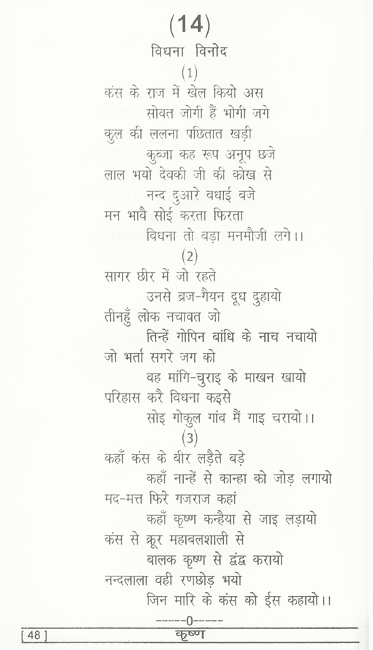 (14)
विधना विनोद
(1)
कंस के राज में खेल कियो अस
सोवत जोगी हैं भोगी जगे
कुल की ललना पछितात खड़ी
कुब्जा कह रूप अनूप छजे
लाल भयो देवकी जी की कोख से
नन्द दुआरे वधाई बजे
मन भावै सोई करता फिरता
विधना तो बड़ा मनमौजी लगे।।
(2)
सागर छीर में जो रहते
उनसे ब्रज-गैयन दूध दुहायो
तीनहुँ लोक नचावत जो
तिन्हें गोपिन बांधि के नाच नचायो
जो भर्ता सगरे जग को
वह मांगि-चुराइ के माखन खायो
परिहास करै विधना कइसे
सोइ गोकुल गांव मैं गाइ चरायो।।
(3)
कहाँ कंस के बीर लड़ैते बड़े
कहाँ नान्हें से कान्हा को जोड़ लगायो
मद-मत्त फिरे गजराज कहां
कहाँ कृष्ण कन्हैया से जाइ लड़ायो
कंस से क्रूर महाबलशाली से
बालक कृष्ण से द्वंद्व करायो
नन्दलाला वही रणछोड़ भयो
जिन मारि के कंस को ईस कहायो।।
-----0-----
48 ] कृष्ण